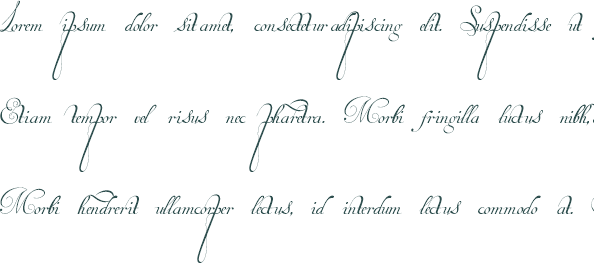 Lorem ipsum dolor sit amet, consectetur adipiscing elit. Suspendisse ut
Etiam tempor vel risus nec pharetra. Morbi fringilla luctus nibh,
Morbi hendrerit ullamcorper lectus, id interdum lectus commodo at.